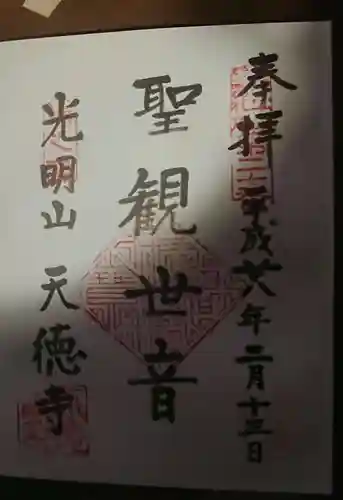 奉拝 平成廿八年二月十三日
聖観世音
光明山 天徳寺